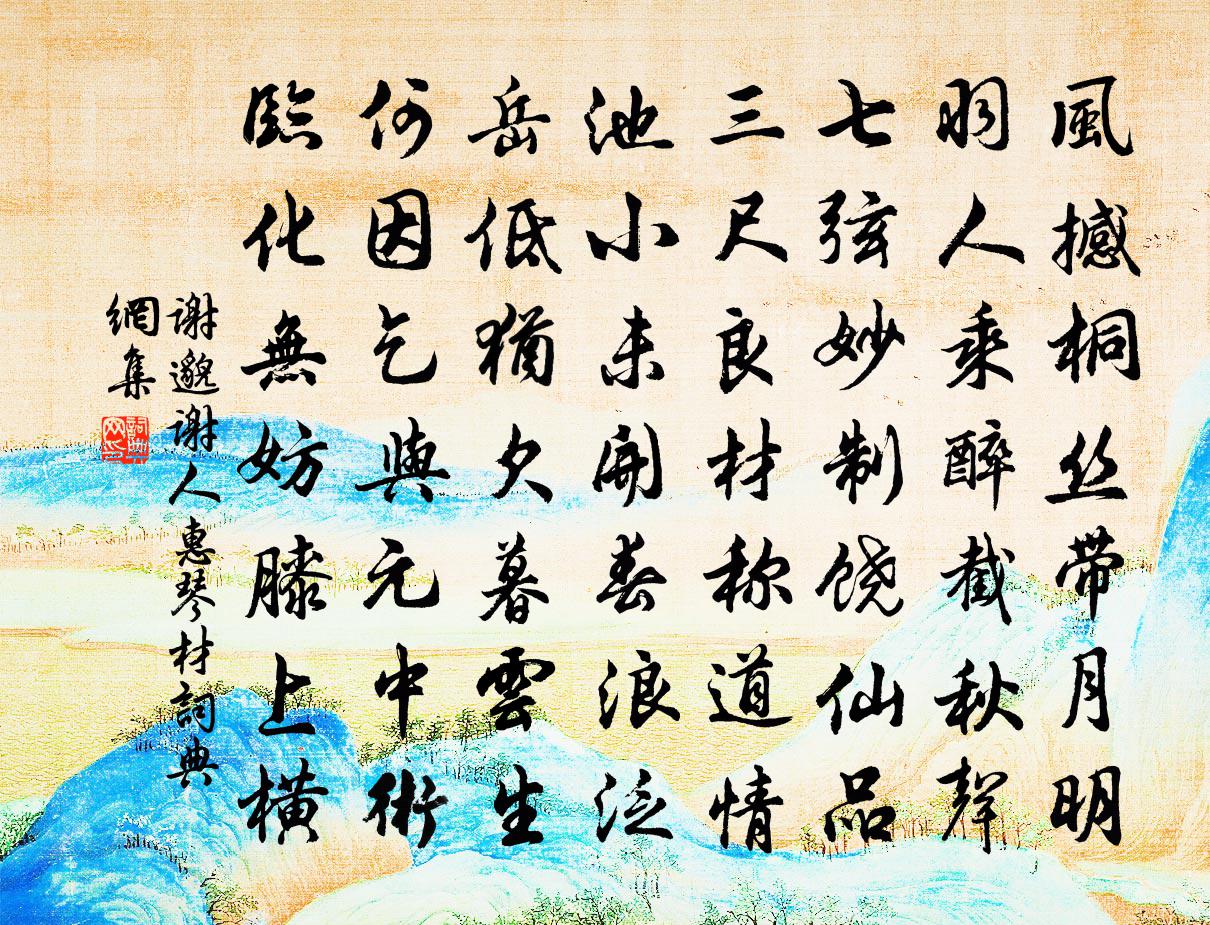 風撼桐丝带月明
羽人乘醉截秋聲
七弦妙制饶仙品
三尺良材称道情
池小未開春浪泛
岳低猶欠暮雲生
何因乞與元中術
臨化無妨膝上橫
谢邈谢人惠琴材詞典
網集